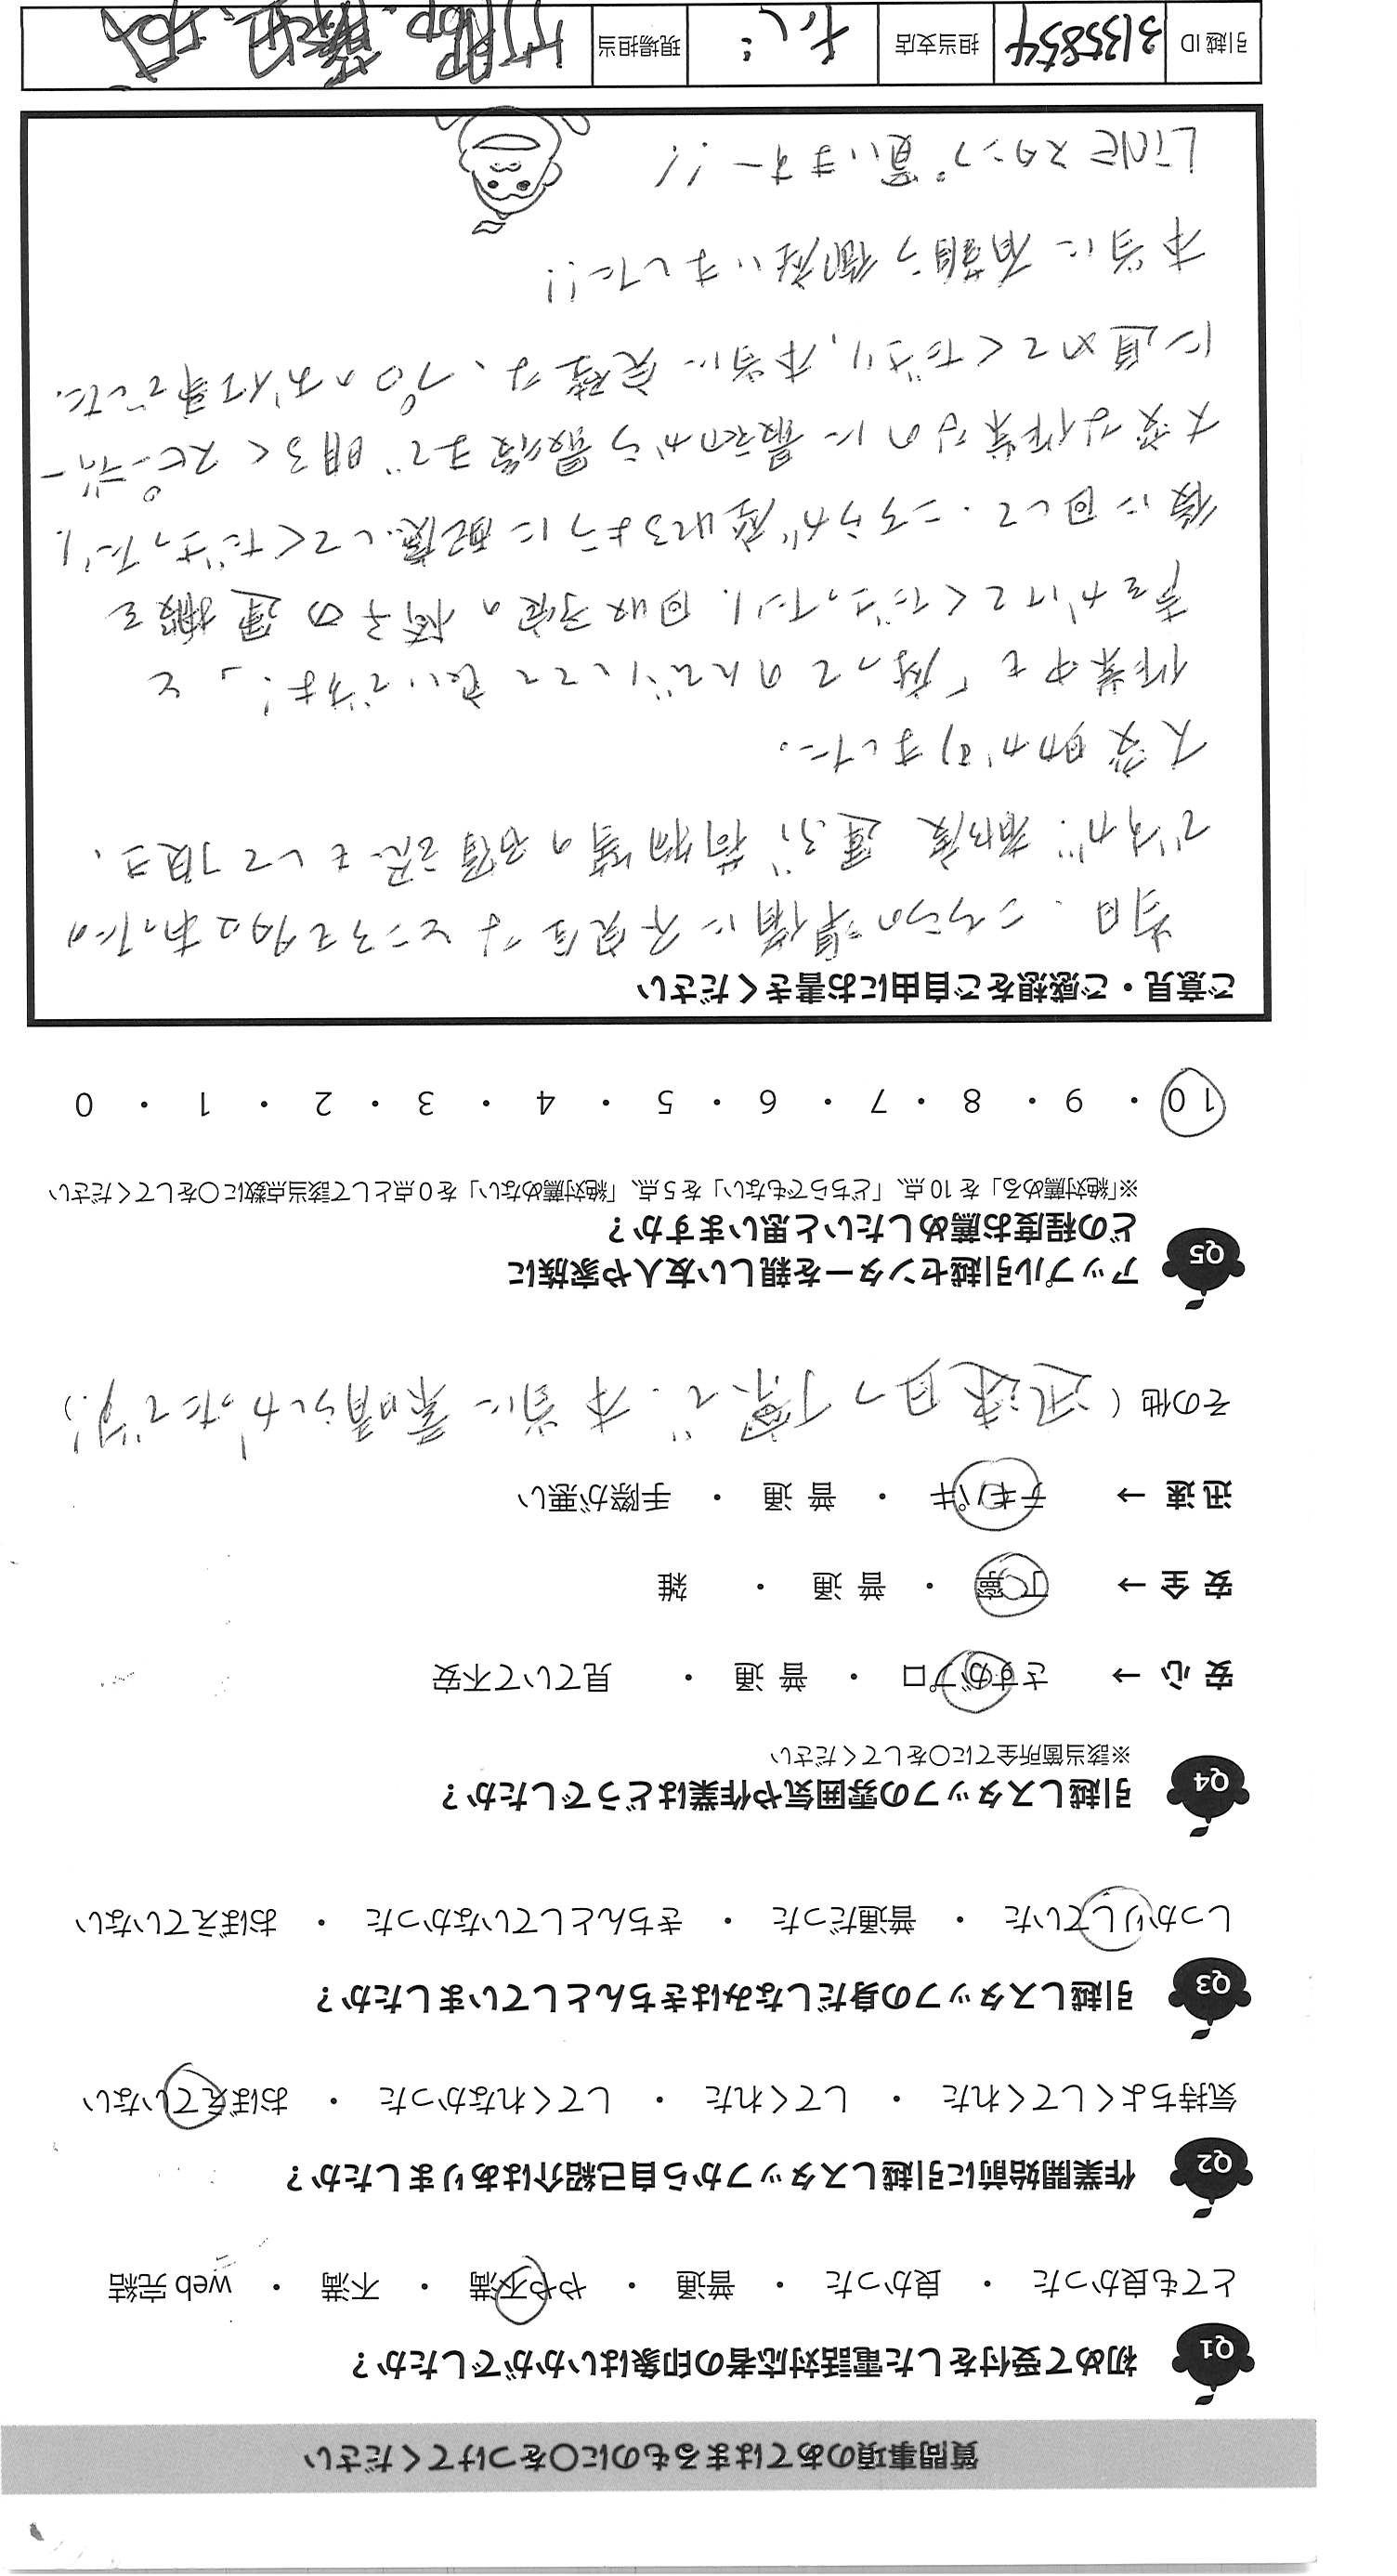 質問事項のあてはまるものに〇をつけてください
Q1 初めて受付をした電話対応者の印象はいかがでしたか？
とても良かった ・ 良かった ・ 普通 ・ やや不満 ・ 不満 ・ web 完結
Q2 作業開始前に引越しスタッフから自己紹介はありましたか？
気持ちよくしてくれた ・ してくれた ・ してくれなかった ・ おぼえていない
Q3 引越しスタッフの身だしなみはきちんとしていましたか？
しっかりしていた ・ 普通だった ・ きちんとしていなかった ・ おぼえていない
Q4 引越しスタッフの雰囲気や作業はどうでしたか？
※該当箇所全てに〇をしてください
安 心 → さすがプロ ・ 普 通 ・ 見ていて不安
安 全 → 丁寧 ・ 普 通 ・ 雑
迅 速 → テキパキ ・ 普 通 ・ 手際が悪い
その他（ 迅速且つ丁寧で、本当に素晴らしかったです！）
Q5 アップル引越センターを親しい友人や家族に
どの程度お薦めしたいと思いますか？
※「絶対薦める」を 10 点、「どちらでもない」を 5 点、「絶対薦めない」を 0 点として該当点数に〇をしてください
10 ・ 9 ・ 8 ・ 7 ・ 6 ・ 5 ・ 4 ・ 3 ・ 2 ・ 1 ・ 0
ご意見・ご感想をご自由にお書きください
当日、こちらの準備に不完全なところも多々あったの
ですが、都度 運ぶ荷物等の確認をして頂き、
大変助かりました。
作業中も「座ってのんびりしてて良いですよ！」と
声をかけてくださったり、回収予定の椅子の運搬を
後に回して、こちらが座れるように配慮してくださったり、
大変な作業なのに最初から最後まで明るくスピーディー
に進めてくださり、本当に完璧な、プロのお仕事でした。
本当に有難う御座いました!!
LINEスタンプ買いますー!!
引越 ID 31358554 担当支店 現場担当